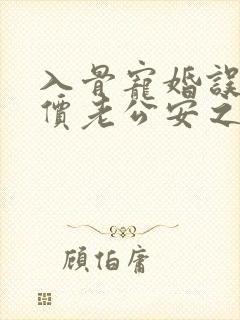 入骨寵婚誤
價老公安之
顧怕庸